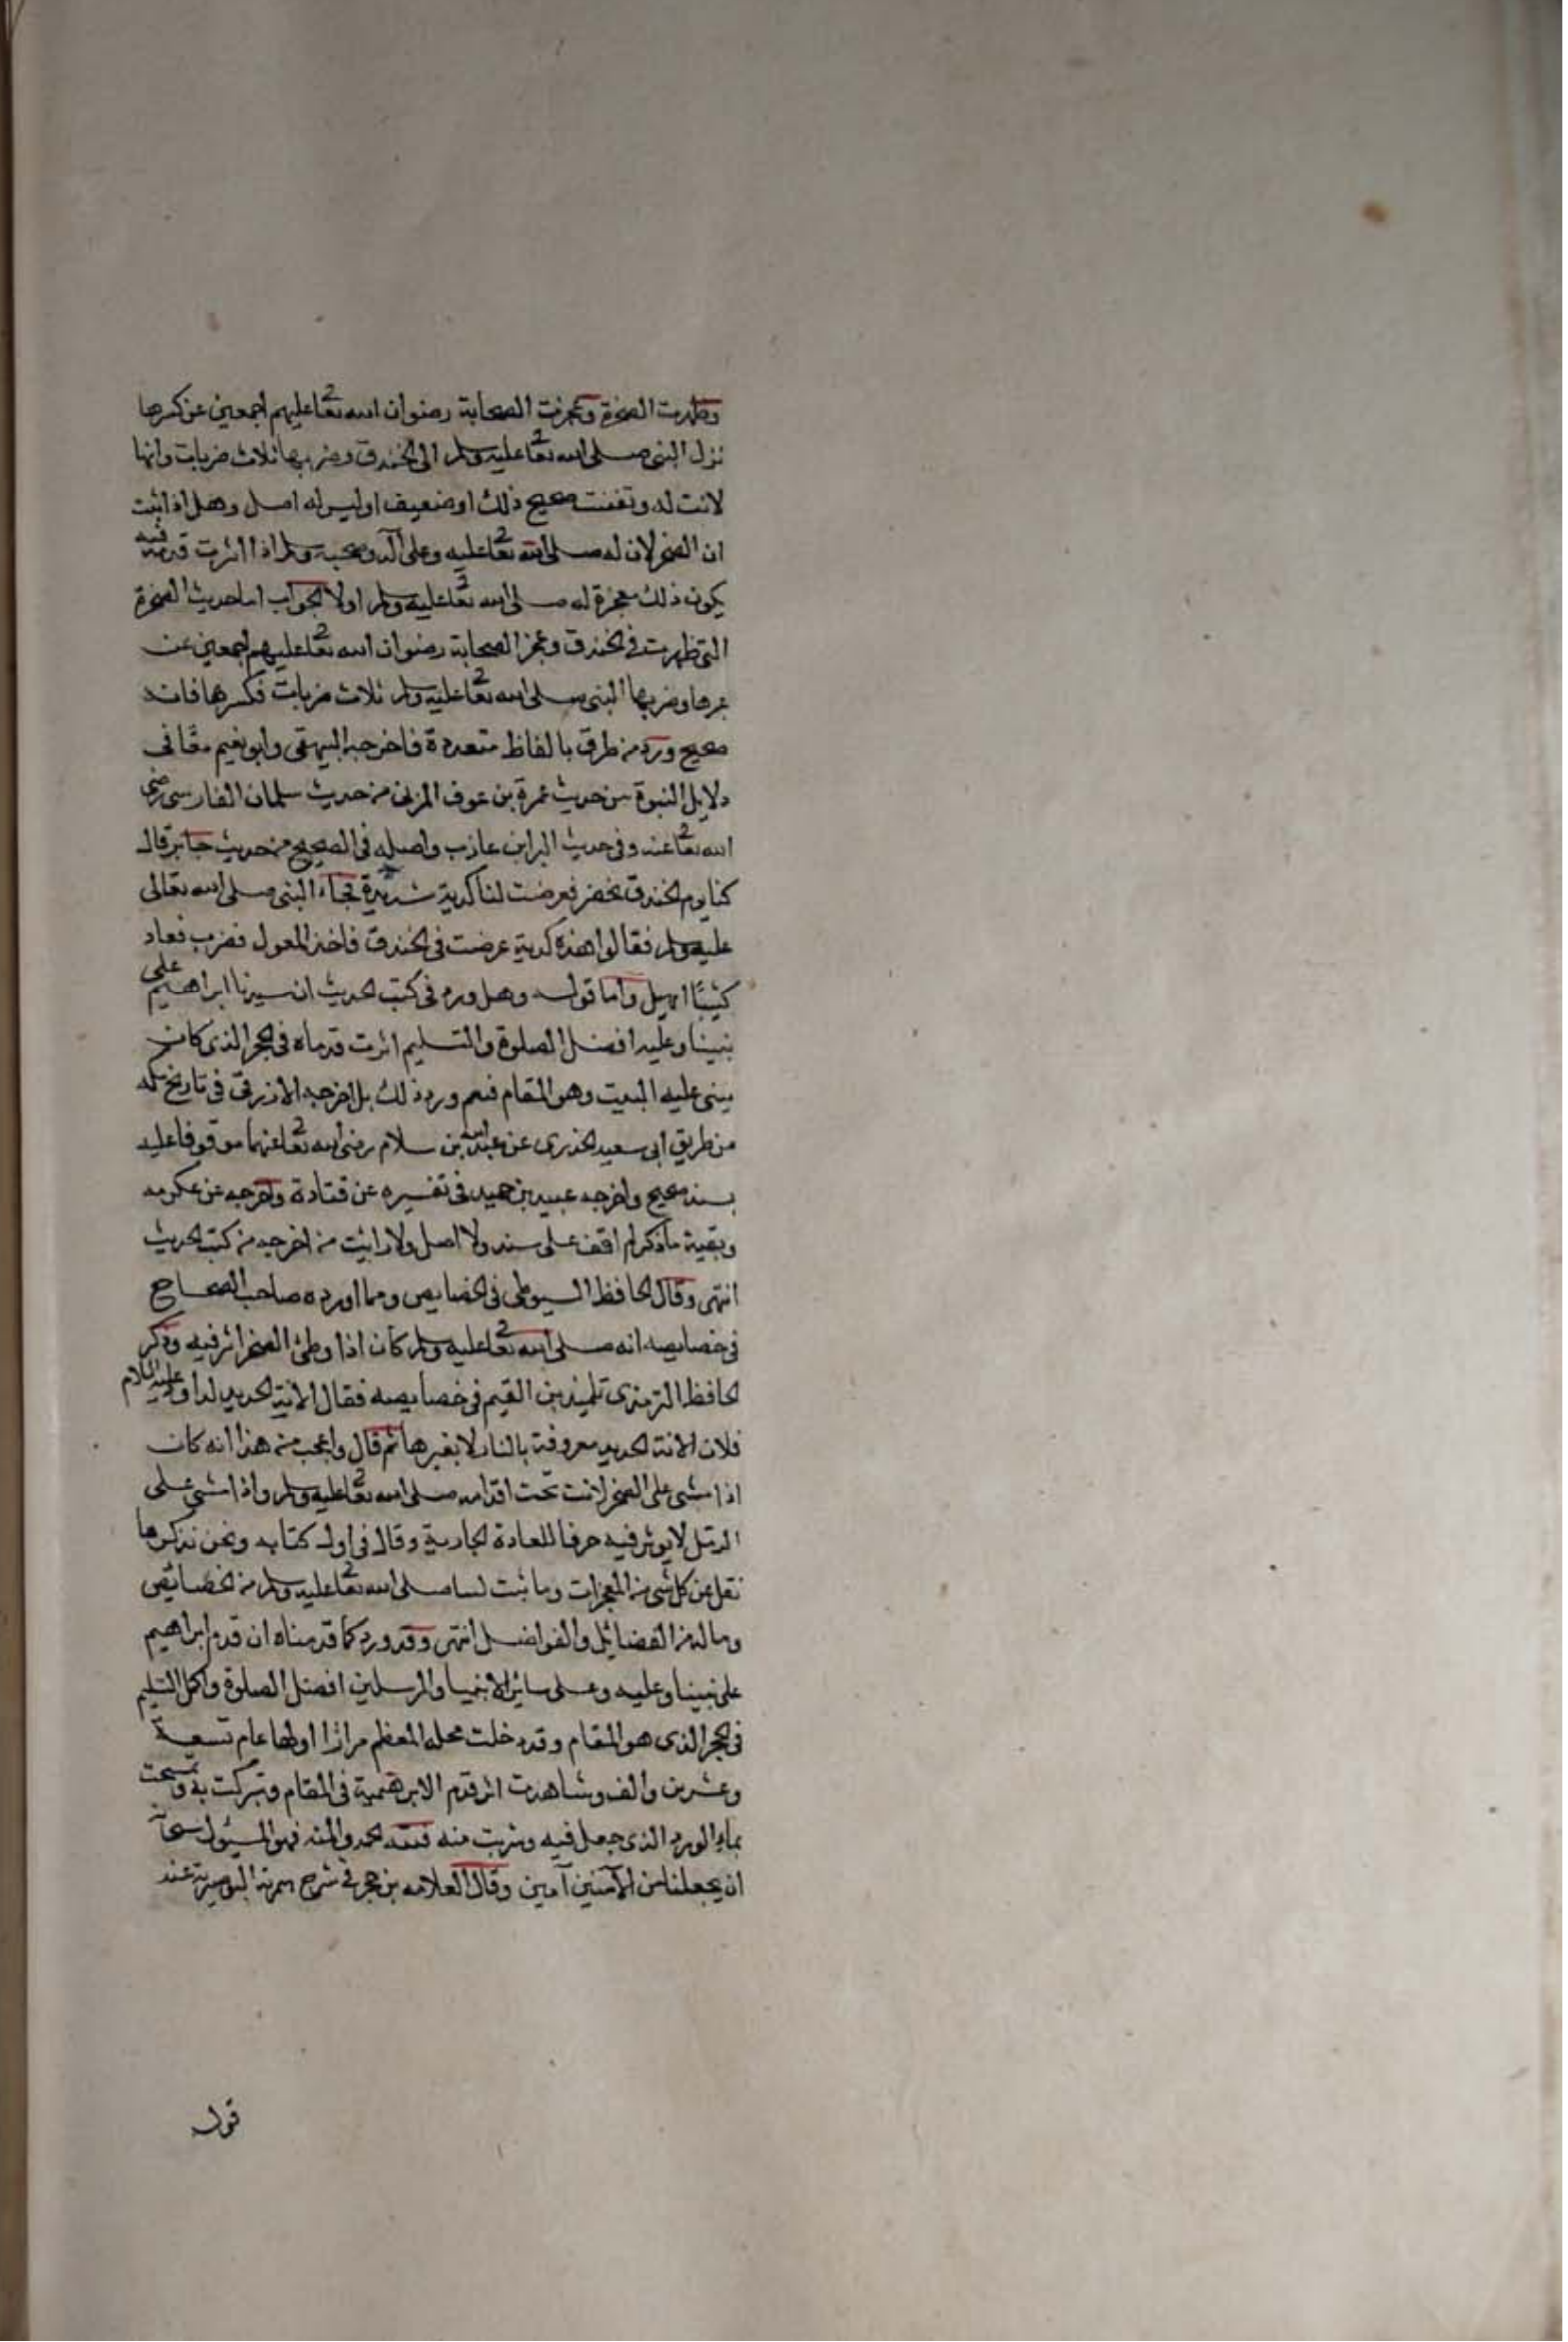 وظهرت الصخرة وعجزت الصحابة رضوان الله تعا عليهم اجمعين عن كسرها
نزل النبى صلى الله تعا عليه وسلم الى الخندق وضربها ثلاث ضربات وانها
لانت له وتفتت صحيح ذلك او ضعيف او ليس له اصل وهل اذا ثبت
ان الصخر لان له صلى الله تعا عليه وعلى آله وصحبه وسلم اذا اثرت قدمه فيه
يكون ذلك معجزة له صلى الله تعا عليه وسلم اولا الجواب اما حديث الصخرة
التى ظهرت فى الخندق وعجز الصحابة رضوان الله تعا عليهم اجمعين عن
وضربها النبى صلى الله تعا عليه وسلم ثلاث ضربات فكسرها فانه
صحيح ورد من طرق بالفاظ متعددة فاخرجه البيهقى وابو نعيم معًا فى
دلايل النبوة من حديث عمرة بن عوف المزنى من حديث سلمان الفارسى رضى
الله تعا عنه وفى حديث البرا بن عازب واصله فى الصحيح من حديث جابر قال
كنا يوم الخندق نحفر فعرضت لنا كدية شديدة فجاء النبى صلى الله تعالى
عليه وسلم فقالوا هذه كدية عرضت فى الخندق فاخذ المعول فضرب فعاد
كثيبًا اهيل واما قوله وهل ورد فى كتب الحديث ان سيدنا ابراهيم على
نبينا وعليه افضل الصلوة والتسليم اثرت قدماه فى الحجر الذى كان
يبنى عليه البيت وهو المقام فنعم ورد ذلك بل اخرجه الازرقى فى تاريخ مكه
من طريق ابى سعيد الخدرى عن عبد الله بن سلام رضى الله تعا عنهما موقوفا عليه
بسند صحيح واخرجه عبيد بن حميد فى تفسيره عن قتادة واخرجه عن عكرمه
وبقية ما ذكر لم اقف على سند ولا اصل ولا رائيت من اخرجه من كتب الحديث
انتهى وقال الحافظ السيوطى فى الخصايص ومما اورده صاحب الصحاح
فى خصايصه انه صلى الله تعا عليه وسلم كان اذا وطئ الصخر اثر فيه وذكر
الحافظ الترمذى تلميذ بن القيم فى خصايصه فقال الانة الحديد لداود عليه السلام
فلان الانة الحديد معروفة بالنار لا بغيرها ثم قال واعجب من هذا انه كان
اذا مشى على الصخر لانت تحت اقدامه صلى الله تعا عليه وسلم واذا مشى على
الرمل لا يوثر فيه خرقا للعادة الجارية وقال فى اول كتابه ونحن نذكر ما
نقل عن كل شى من المعجزات وما ثبت صلى الله تعا عليه وسلم من الخصائص
وما له من الفضائل والفواضل انتهى وقد ورد كما قدمناه ان قدم ابراهيم
على نبينا وعليه وعلى سائر الانبيا والمرسلين افضل الصلوة واكمل التسليم
فى الحجر الذى هو المقام وقد دخلت محله المعظم مرارًا اولها عام تسعة
وعشرين والف وشاهدت اثر قدم الابرهيمية فى المقام وتبركت به وتمسحت
بماء الورد الذى جعل فيه وشربت منه فلله الحمد والمنه فهو المسئول
ان يجعلنا من الآمنين آمين وقال العلامه بن حجر فى شرح همزية البوصيرى عند
قول